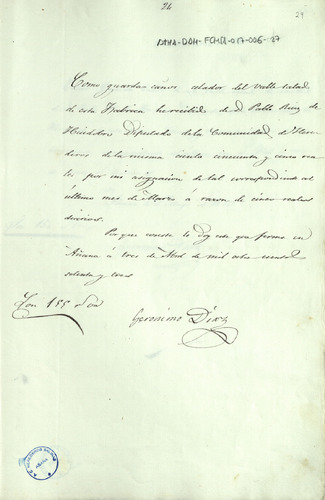 24
29
DAHA-DOH-FCMR-017-006-27
Como guarda-caños celador del Valle salad
de esta Fabrica he recibido de D. Pablo Ruiz de
Huidobro Diputado de la Comunidad de Here
deros de la misma ciento cincuenta y cinco rea
les por mi asignacion de tal correspondiente al
último mes de Marzo à razon de cinco reales
diarios.
Para que conste le doy este que firmo en
Añana à tres de Abril de mil ocho cientos
setenta y tres
Son 155 rs von
Geronimo Diaz